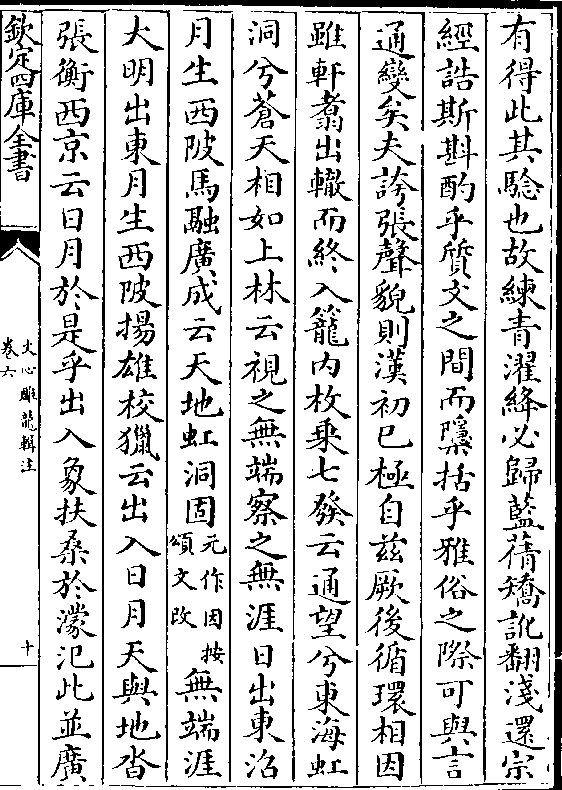 有得此其騐也故練青濯絳必歸藍蒨矯訛翻淺還宗
經誥斯斟酌乎質文之間而隱括乎雅俗之際可與言
通變矣夫誇張聲貌則漢初已極自兹厥後循環相因
雖軒翥出轍而終入籠内枚乗七發云通望兮東海虹
洞兮蒼天相如上林云視之無端察之無涯日出東沼
月生西陂馬融廣成云天地虹洞固元作因按頌文改無端涯
大明出東月生西陂揚雄校獵云出入日月天與地沓
張衡西京云日月於是乎出入象扶桑於濛汜此並廣
欽定四庫全書
文心雕龍輯注
卷六
十